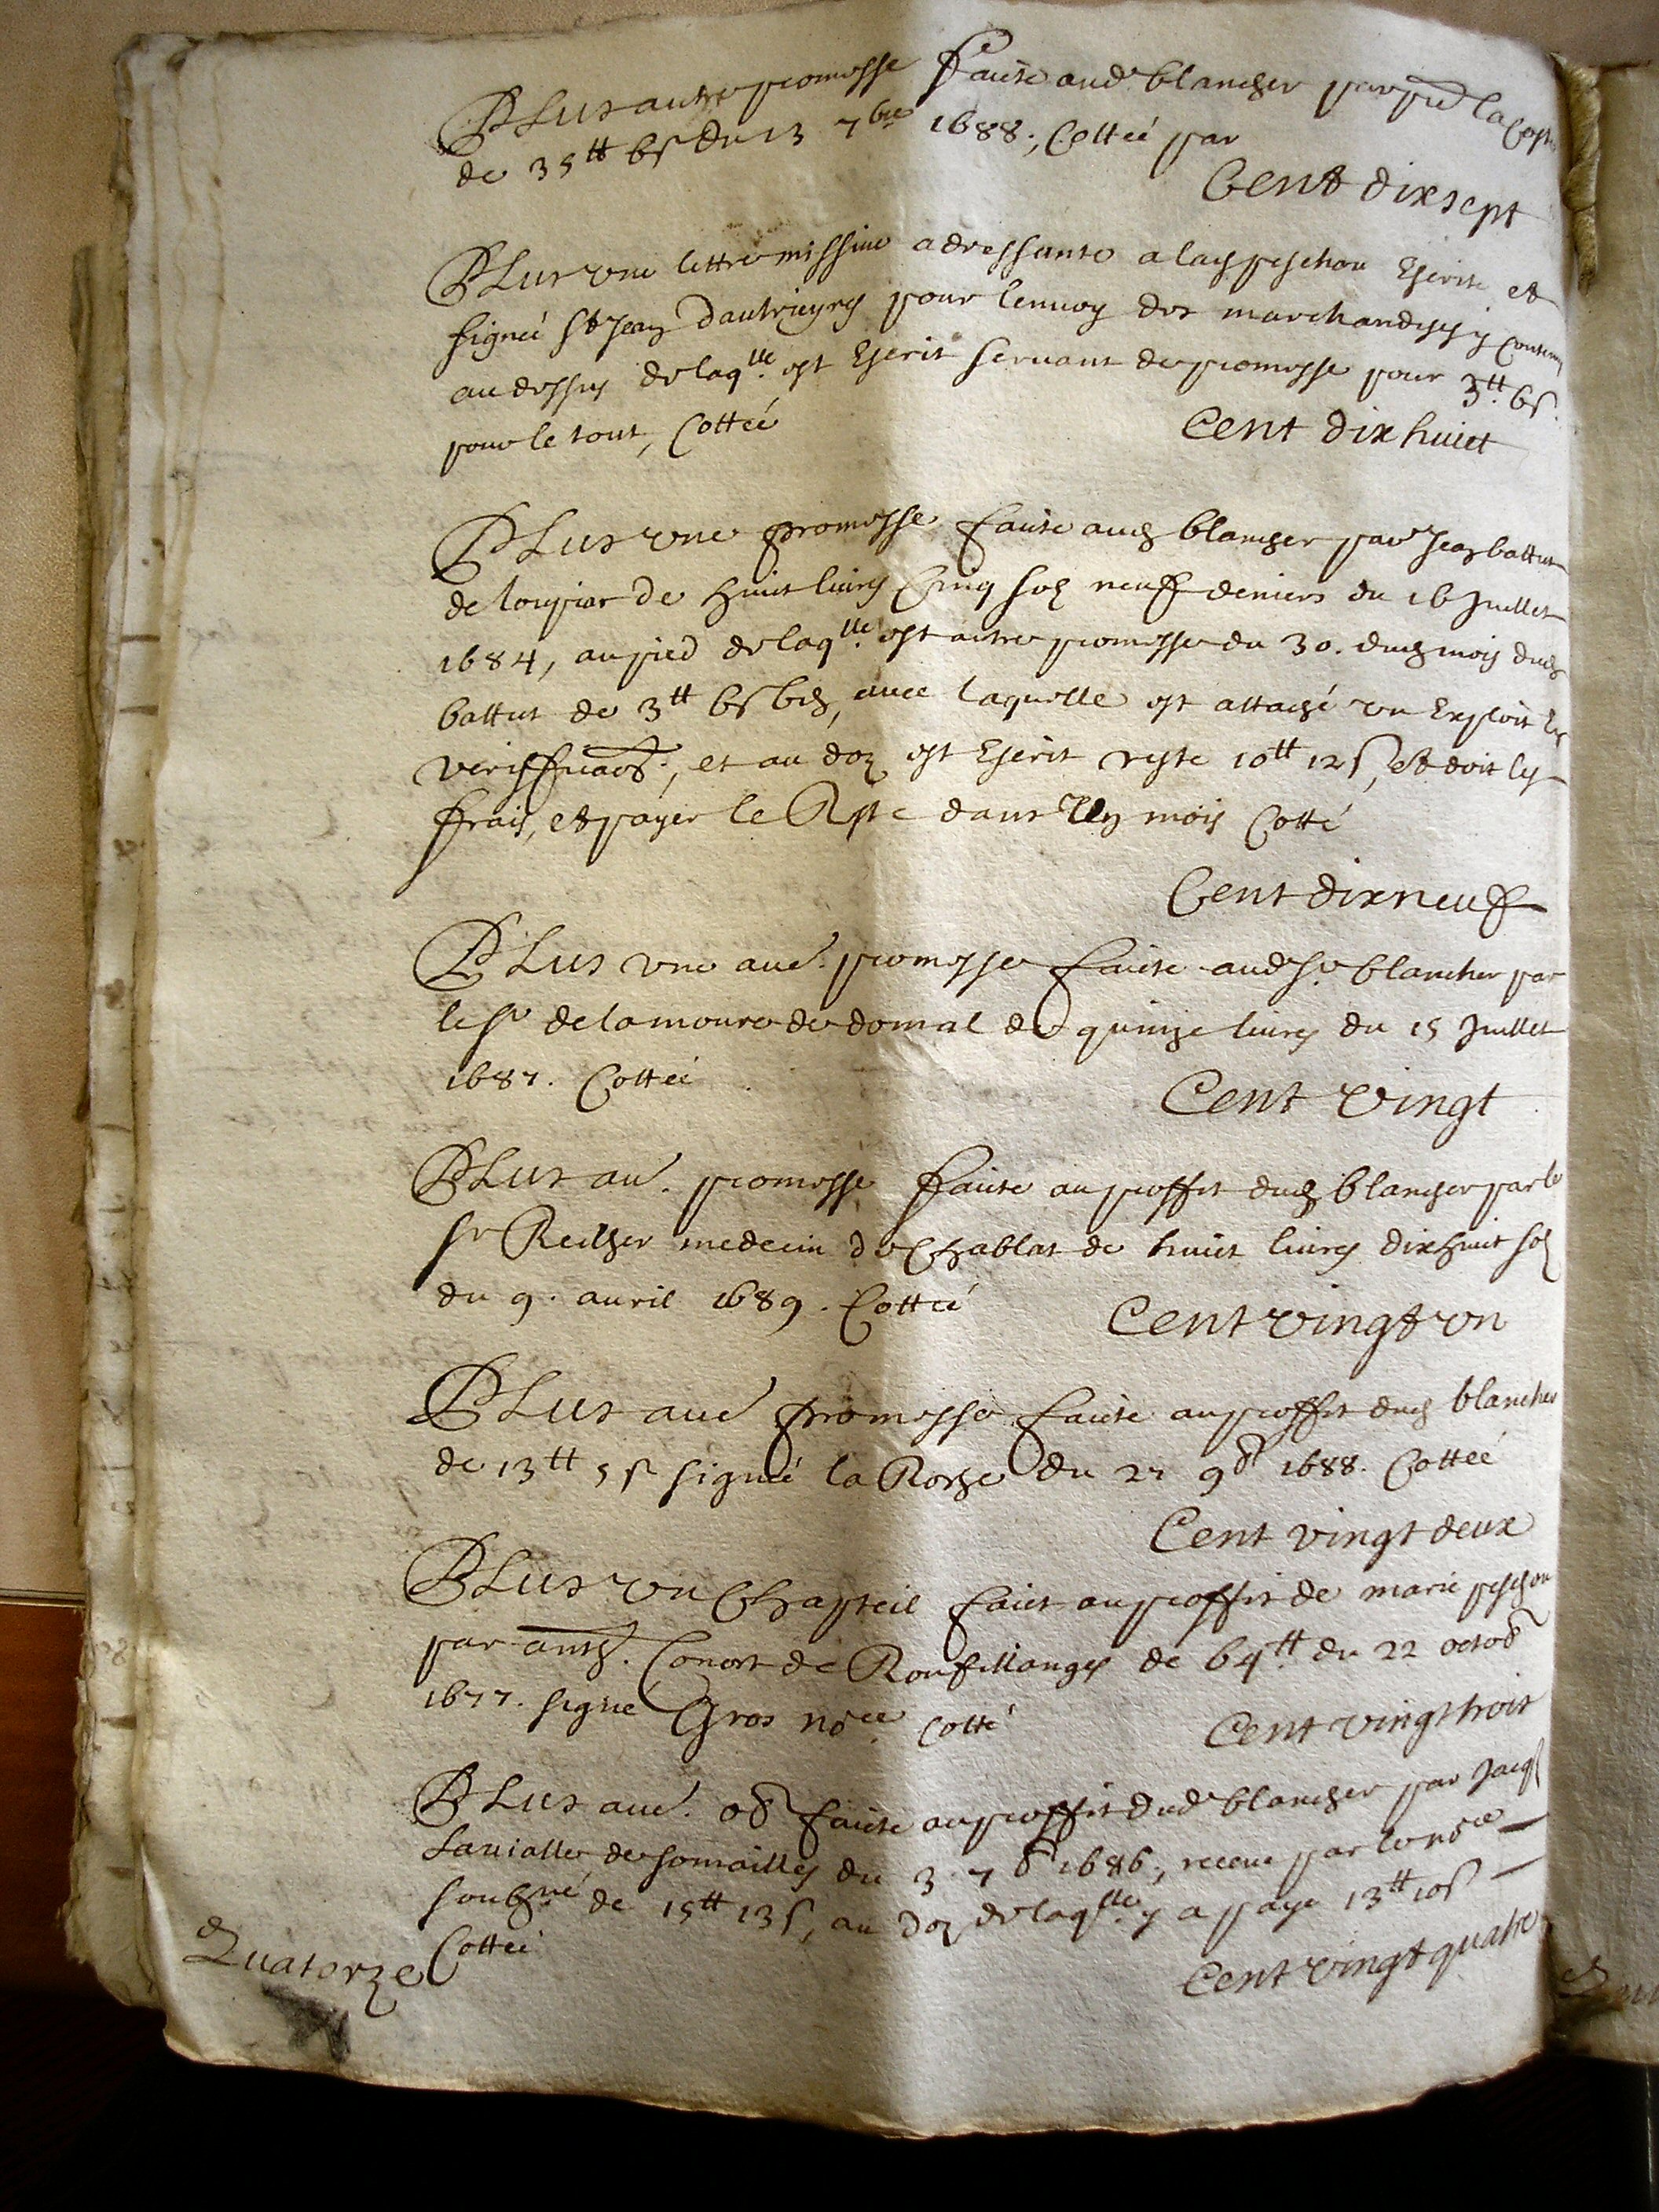 Plus autre promesse faicte aud blancher par
de 35tt 6s du 13 7bre 1688, Cottée par
Cent dixsept
Plus une lettre missive adressante a lad peschou Escrite et
signée St Jean dautrieyres pour lenvoy des marchandises y
au dessus de laqlle est Escrit servant de promesse pour 3tt 6s
pour le tout, Cottée
Cent dix huict
Plus une promesse faicte aud blancher par Jean battut
de loupiac de huict livres Cinq solz neuf deniers du 16 Juillet
1684, au pied de laqlle est autre promesse du 30. dud mois dud
battut de 3tt 6s 6d, avec laquelle est attaché un Exploit
et au doz est Escrit reste 10tt 12s, et doit les
frais, et payer le dans un mois Cotté
Cent dixneuf
Plus une aue. promesse faicte aud Sr blancher par
le Sr delamoure de domal de quinze livres du 15 Juillet
1687. Cottée
Cent vingt
Plus au. promesse faicte au proffit dud blancher par le
Sr Reilher medecin de Chablat de huict livres dixhuit solz
du 9. avril 1689. Cottée
Cent vingt un
Plus aue promesse faicte au proffit dud blancher
de 13tt 5s signée la Roche du 27 9b 1688. Cottée
Cent vingt deux
Plus un Chapteil faict au proffit de marie peschou
par anth. Conort de Roufillanges de 64tt du 22 octob
1677. signé Gros nore Cotté
Cent vingt trois
Plus aue. ob faicte au proffit dud blancher par Jacqs
Lavialle de somailles du 3. 7b 1686, receue par le nore
soubzné de 15tt 13s, au doz de laqlle y a payé 13tt 10s
Cottée
Cent vingt quatre
Quatorze